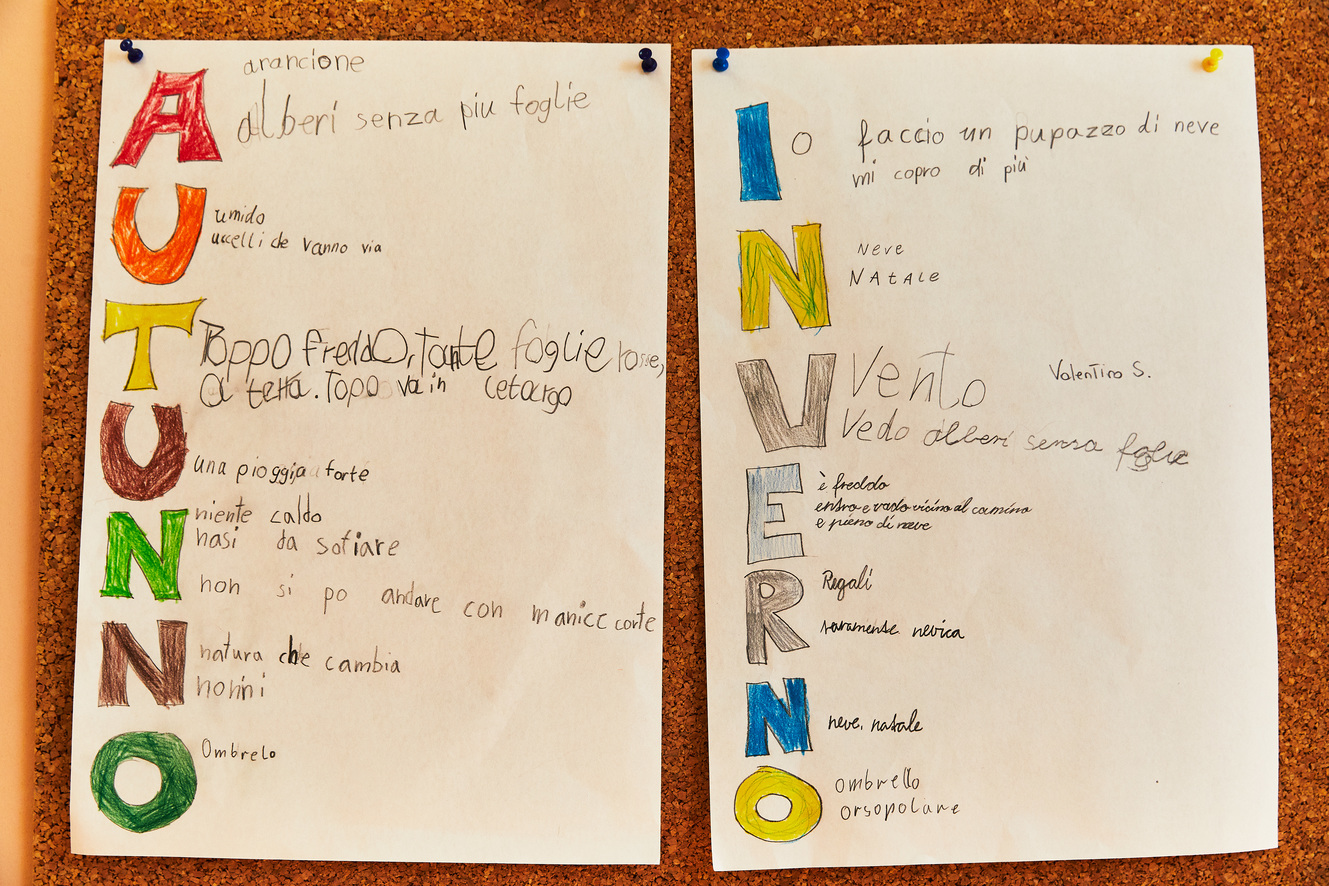 arancione
A alberi senza piu foglie
U umido
uccelli che vanno via
T Toppo freddo, tante foglie rosse,
a terra. Topo va in letargo
U una pioggia forte
N niente caldo
nasi da sofiare
non si po andare con manicc corte
N natura che cambia
nonni
O Ombrelo
I o faccio un pupazzo di neve
mi copro di più
N Neve
NAtAle
V Vento
Valentino S.
Vedo alberi senza foglie
E è freddo
entro e vado vicino al camino
e pieno di neve
R Regali
raramense nevica
N neve, natale
O ombrello
orsopolare